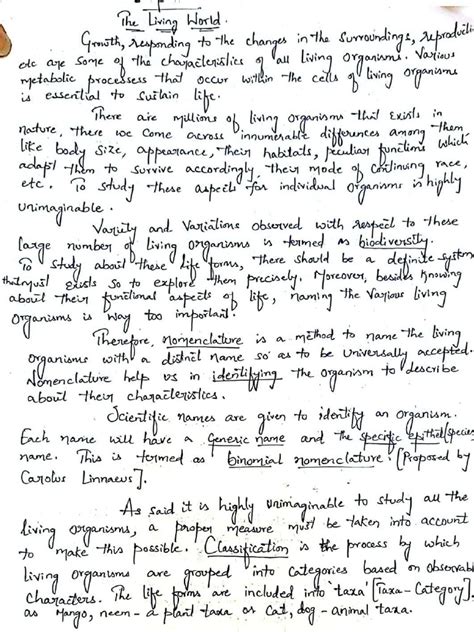 The Living World.
Growth, responding to the changes in the surroundings, reproducti
etc are some of the characteristics of all living organisms. Various
metabolic processess that occur within the cells of living organisms
is essential to sustain life.
There are millions of living organisms that exists in
nature, there we come across innumerable differences among them
like body size, appearance, their habitats, peculiar functions which
adapt them to survive accordingly, their mode of continuing race,
etc. To study these aspects for individual organisms is highly
unimaginable.
Variety and Variations observed with respect to these
large number of living organisms is termed as biodiversity.
To study about these life forms, there should be a definite system
that must exists so to explore them precisely. Moreover, besides knowing
about their functional aspects of life, naming the various living
organisms is way too important.
Therefore, nomenclature is a method to name the living
organisms with a distinct name so as to be universally accepted.
Nomenclature help us in identifying the organism to describe
about their characteristics.
Scientific names are given to identify an organism.
Each name will have a Generic name and the specific epithet (species
name. This is termed as binomial nomenclature. [Proposed by
Carolus Linnaeus].
As said it is highly unimaginable to study all the
living organisms, a proper measure must be taken into account
to make this possible. Classification is the process by which
living organisms are grouped into categories based on observable
characters. The life forms are included into 'taxa' [Taxa - Category].
as Mango, neem - a plant taxa or Cat, dog - animal taxa.